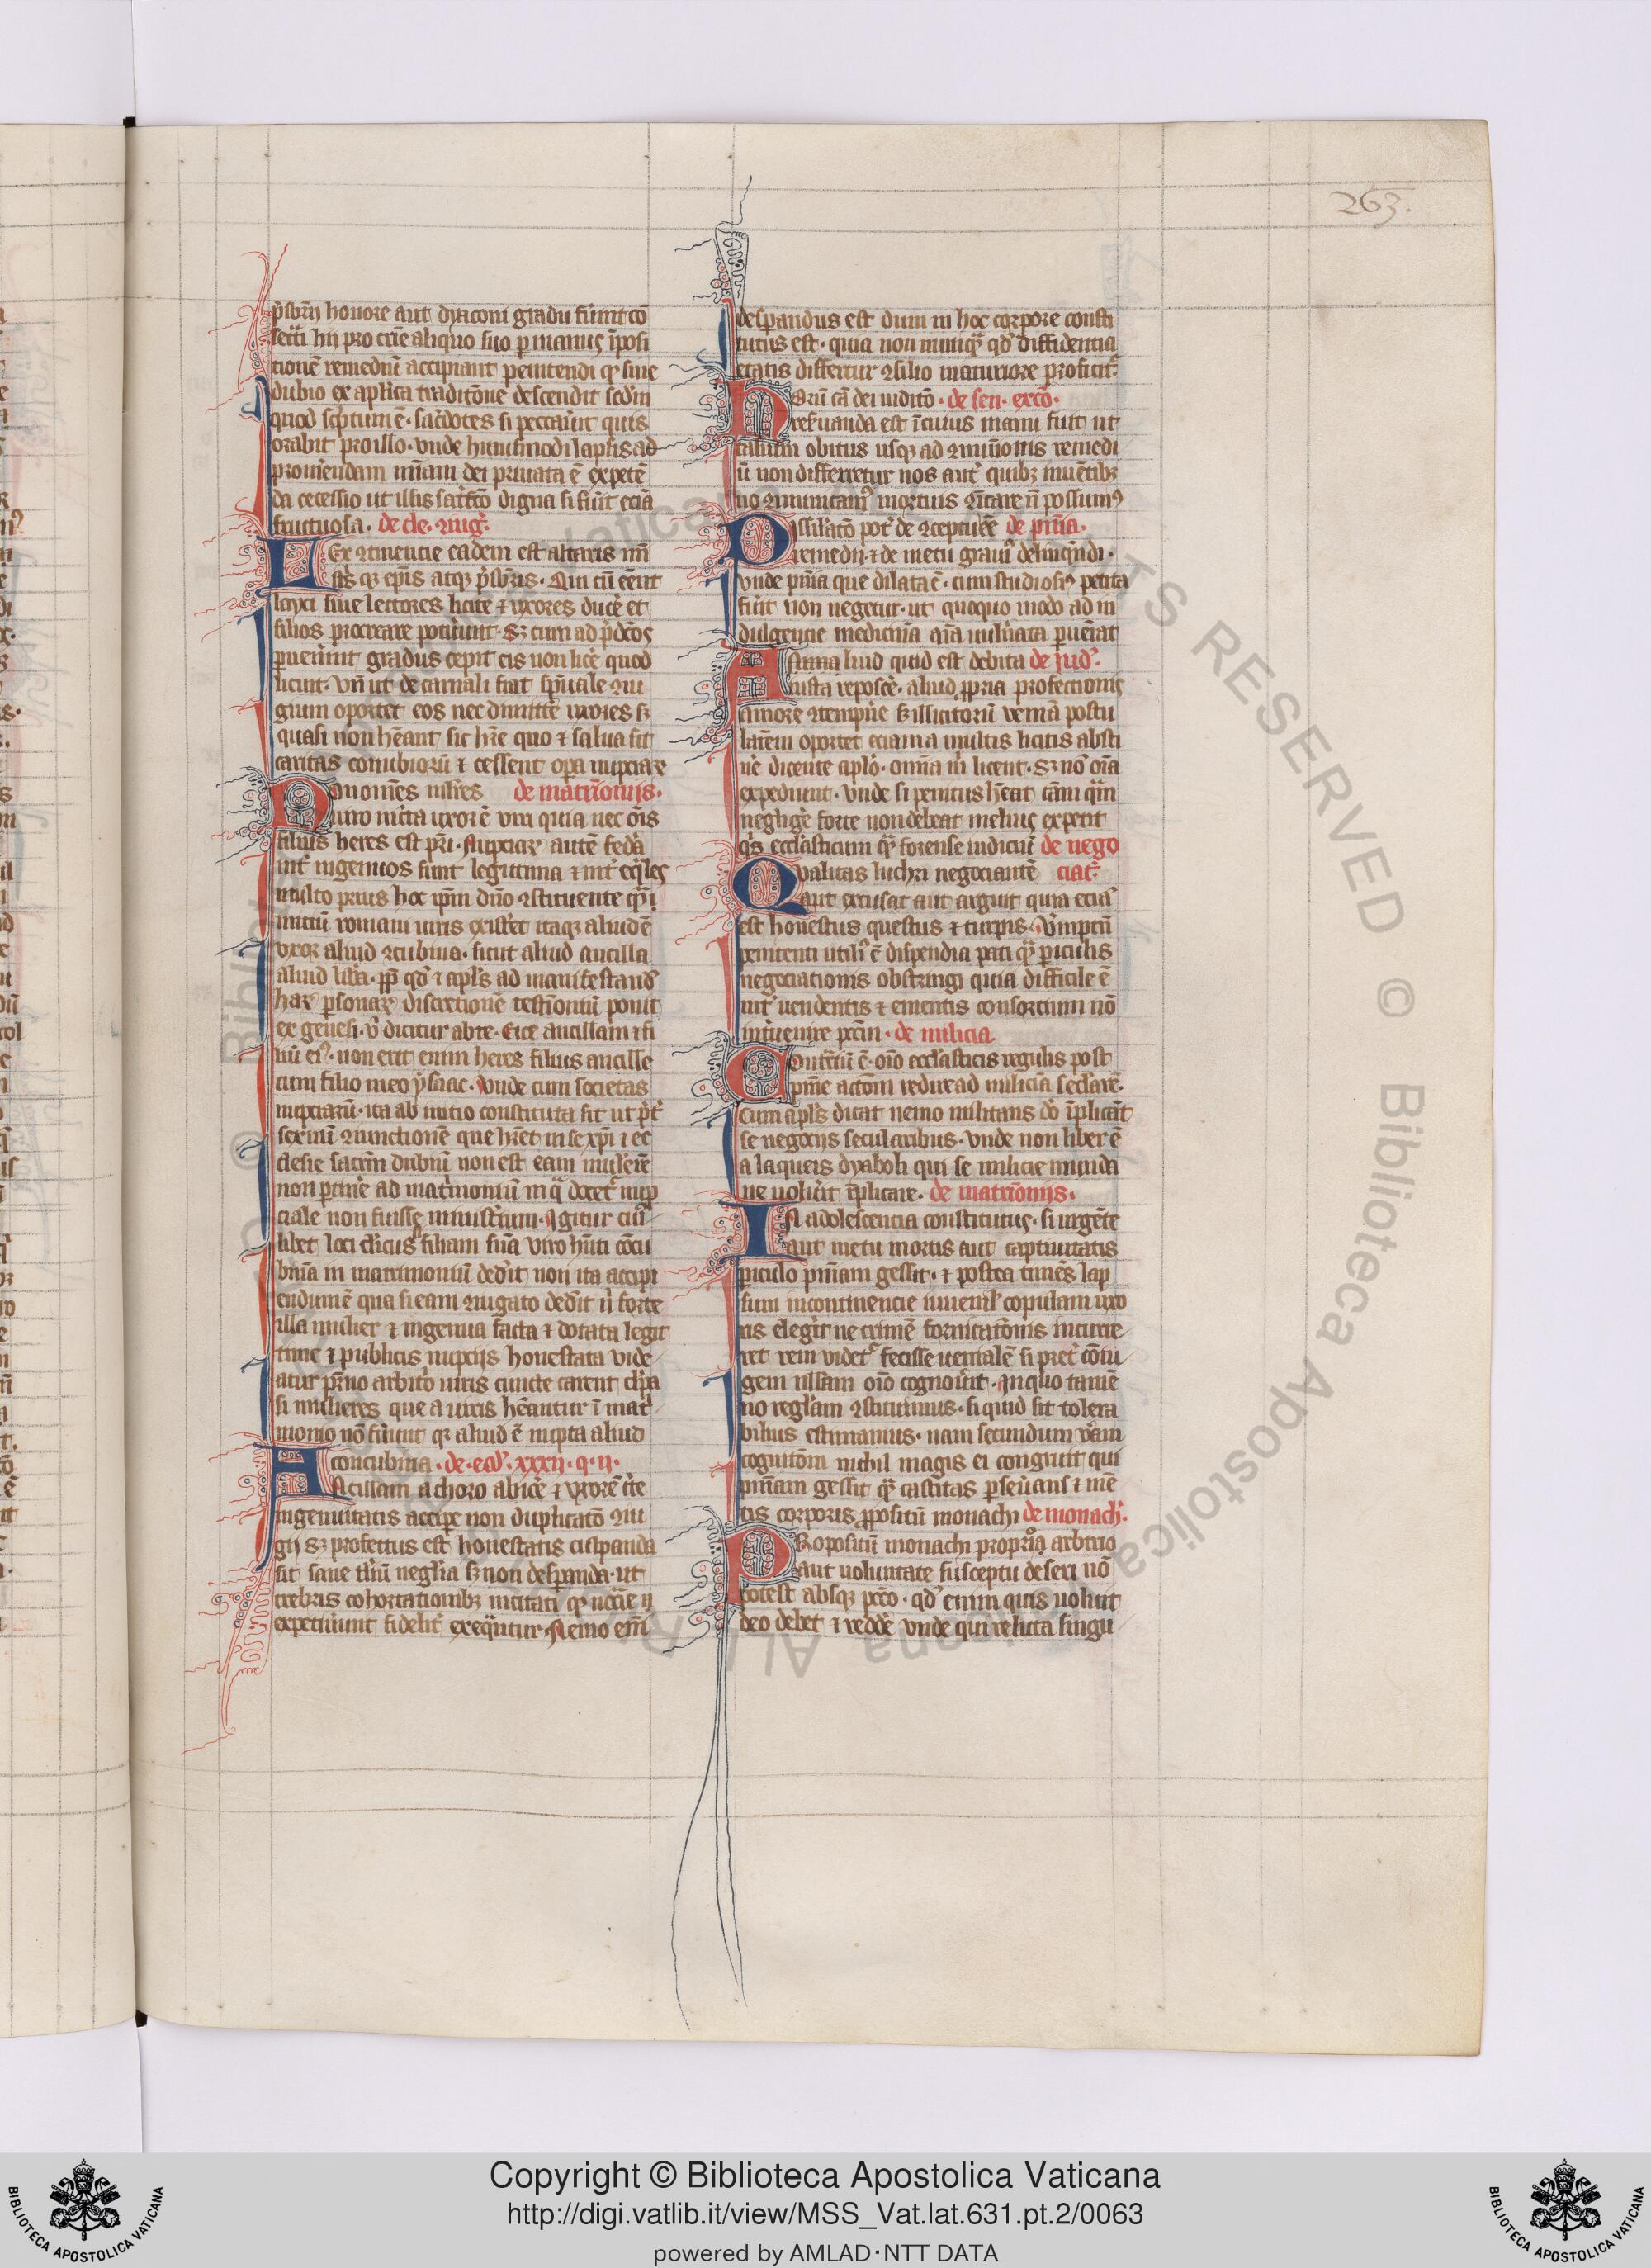 263.
p̄sbrij honore aut dyaconi gradu fu͛int cō
secͣti hij pro crīe aliquo suo ꝑ manus īposi
tionē remediū accipiant penitendi qꝫ sine
dubio ex aplica tradit̄one descendit scd̄m
quod scptum ē · sac͛dotes si peccau͛int quis
orabit pro illo · vnde hui⁹modi lapsis ad
prom͛endam mīam dei priuata ē expetē
da cecessio ut illis satfc̄o digna si fu͛it eciā
fructuosa · de cle · ꝯiug͛
Lex ꝯtinencie eadem est altaris mī
st͛s qꝫ ep̄is atqꝫ p̄sbr͛is · Qui cū eēnt
layci siue lectores licite ⁊ vxores duc͛e et
filios procreare pot͛unt · Sꝫ cum ad p̄dc̄os
puen͛int gradus cepit eis non lice͛ quod
licuit · vn̄ ut de carnali fiat sp̄uale ꝯiu
gium oportet eos nec dimitte͛ uxores sꝫ
quasi non hēant sic hr̄e quo ⁊ salua sit
caritas conubiorū ⁊ cessent oꝑa nupciaꝝ
Non om̄es mlr̄es de mat͛moniis ·
uiro iūcta uxor ē viri quia nec ōis
filius heres est pr̄i · Nupciaꝝ autē fede͛a
int͛ ingenuos sunt legitima ⁊ int͛ eq̄les
multo prius hoc ip̄m dn̄o ꝯstituente qͣm ī
iniciū romani iuris existe͛t itaqꝫ aliud ē
vxor aliud ꝯcubina · sicut aliud ancilla
aliud lib͛a · ꝓp̄ qd̄ ⁊ apl̄s ad manifestand̄
haꝝ ꝑsonaꝝ discretionē testīoniū ponit
ex genesi · v̄ dicitur abre · Eice ancillam ⁊ fi
liū ei⁹ · non erit enim heres filius ancille
cum filio meo ysaac · Vnde cum societas
nupciarū · ita ab initio constituta sit ut p̄t͛
sexuū ꝯiunctionē que hr̄et in se xp̄i ⁊ ec
clesie sacr̄m dubiū non est eam muli͛erē
non ꝑtine͛ ad mat͛moniū in qͣ docet͛ nup
ciale non fuisse minist͛ium · Igitur cui⁹
libet loci cl͛icus filiam suā viro hn̄ti cōcu
binā in matrimoniū dede͛it non ita accipi
endum ē qua si eam ꝯiugato dede͛it n̄ forte
illa mulier ⁊ ingenua facta ⁊ dotata legit
time ⁊ publicis nupcijs honestata vide
atur pr̄no arbitrio uiris cuncte carent cl͛pa
si mulieres que a uiris hēantur ī mat͛
monio nō fu͛unt qꝛ aliud ē nupta aliud
concubina · de · ead̄ · xxxij · q · ij ·
Ancillam a choro abice͛ ⁊ vxorē c͛te
ingenuitatis accipe non duplicatō ꝯiu
gij sꝫ profectus est honestatis culpanda
sit sane tl͛iū negl͛ia sꝫ non despanda · ut
crebris cohortationibꝫ incitati qꝫ nc̄cie īj
expetiuiunt fidelit͛ exeqͣntur · Nemo em̄
despandus est dum in hoc corpore consti
tutus est · quia non nunqͣꝫ qd̄ diffidentia
etatis differtur ꝯsilio maturiore proficit͛
Horū cā dei iudito · de sen · exc̄o ·
reseruanda est ī cuius manu fuit ut
talium obitus usqꝫ ad ꝯmun̄onis remedi
ū non differretur nos aut͛ quibꝫ iuuētibꝫ
nō ꝯmunicam⁹ mortuis ꝯicare n̄ possum⁹
Dissilatō pot͛ de ꝯceptu ēē de pn̄ia ·
remedij ⁊ de metu graui⁹ delinqndi ·
vnde pn̄ia que dilata ē · cum studiosi⁹ petita
fu͛it non negetur · ut quoquo modo ad in
dulgencie medicinā aīa uuln͛ata pueniat
Annaliud quid est debita de iud̄ ·
iusta reposce͛ · aliud ꝓpria profectionis
amore ꝯtempn͛e sꝫ illicitorū veniā postu
latēm oportet eciam a multis licitis absti
n͛e dicente aplo͛ · omīa m̄ licent · sꝫ nō oīa
expediunt · vnde si penitus hēat cām qͣm
neglige͛ forte non debeat melius expetit
qs̄ eccl͛asticum qͣꝫ forense iudiciū de nego
Qvalitas luchri negociantē ciat͛ ·
aut excusat aut arguit quia ecia͛
est honestus questus ⁊ turpis · Vmptn̄
penitenti utili⁹ ē dispendia pati qͣꝫ piculis
negociationis obstringi quia difficile ē
int͛ uendentis ⁊ ementis consortium nō
int͛uenire pcc̄m · de milicia
Contrariū ē · oīo eccl͛asticis regulis post
pnīe actōm redire ad miliciā secl͛arē ·
Cum apl̄s dicat nemo militans dō īplicat
se negocijs secularibus · vnde non liber ē
a laqueis dyaboli qui se milicie munda
ne uolu͛it īplicare · de matrimonijs ·
In adolescencia constitutus · si urgēte
aut metu mortis aut captiuitatis
ꝑiculo pn̄iam gessit · ⁊ postea timēs lap
sum incontinencie iuuenil͛ copulam uxo
ris elegit ne crimē fornicatōnis incurre
ret rem videt͛ fecisse uenialē si pret͛ cōiu
gem nullam oīo cognou͛it · In quo tamē
nō regl͛am ꝯstituimus · si quid sit tolera
bilius estimamus · nam secundum ve͛am
cognitōm nichil magis ei congruit qui
pn̄iam gessit qͣꝫ castitas ꝑseu͛ans ⁊ mē
tis corporis ꝓpositū monachi de monach͛ ·
Propositū monachi proprio arbitrio
aut uoluntate susceptū deseri nō
potest absqꝫ pcc̄o · qd̄ enim quis uoluit
deo debet ⁊ redde͛ vnde qui relicta singu
Copyright © Biblioteca Apostolica Vaticana
http://digi.vatlib.it/view/MSS_Vat.lat.631.pt.2/0063
powered by AMLAD·NTT DATA
BIBLIOTECA APOSTOLICA VATICANA
BIBLIOTECA APOSTOLICA VATICANA